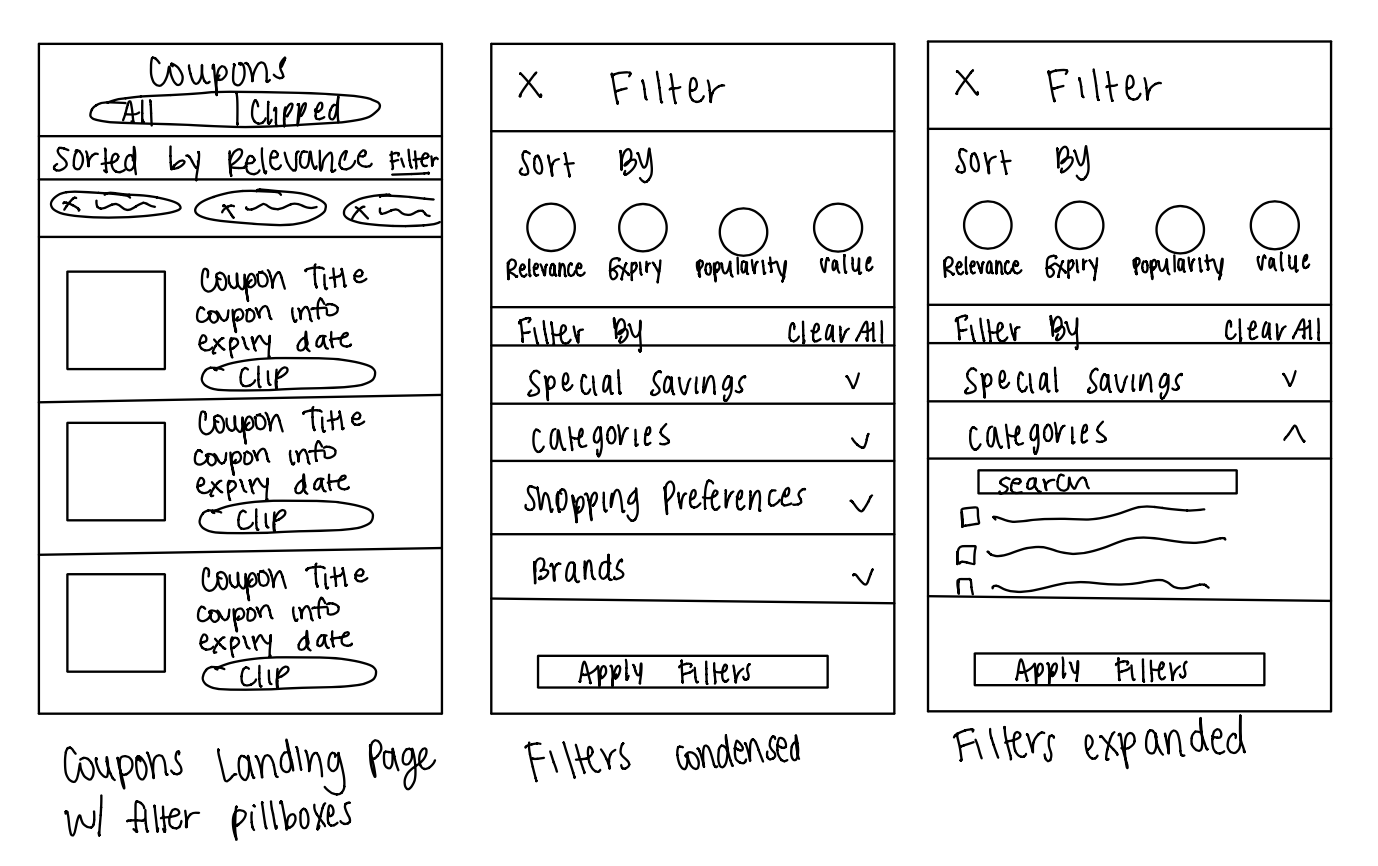 Coupons
All | Clipped
Sorted by Relevance Filter
x
x
x
Coupon Title
coupon info
expiry date
Clip
Coupon Title
coupon info
expiry date
Clip
Coupon Title
coupon info
expiry date
Clip
Coupons Landing Page
w/ filter pillboxes
X Filter
Sort By
Relevance Expiry Popularity value
Filter By Clear All
Special Savings
Categories
Shopping Preferences
Brands
Apply Filters
Filters condensed
X Filter
Sort By
Relevance Expiry Popularity value
Filter By Clear All
Special Savings
Categories
search
Apply Filters
Filters expanded